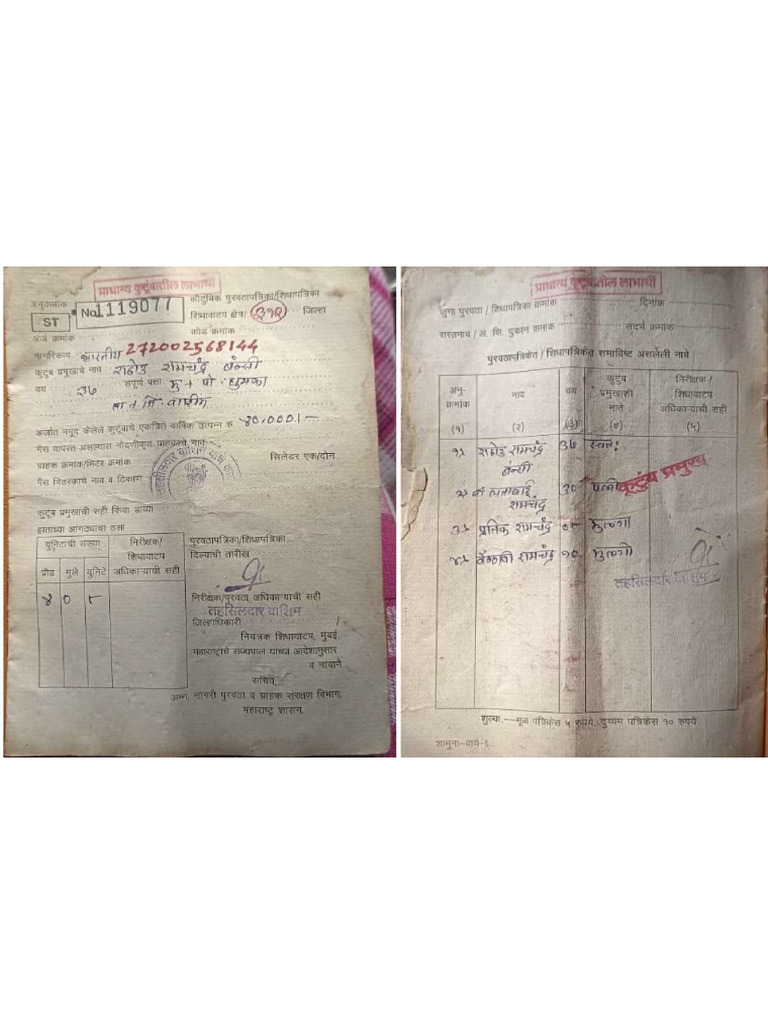 प्राधान्य कुटूंबातील लाभार्थी
अनुक्रमांक
कौटुंबिक पुरवठापत्रिका/शिधापत्रिका
No 1119077
ST
शिधावाटप क्षेत्र/ जिल्हा
अर्ज क्रमांक
कोड क्रमांक
नागरिकत्व भारतीय 272002568144
कुटुंब प्रमुखाचे नाव राठोड रामचंद्र बन्सी
वय ३७ संपूर्ण पत्ता मु + पो
ता + जि वाशीम
अर्जात नमूद केलेले कुटुंबाचे एकत्रित वार्षिक उत्पन्न रु. ४०,०००/-
गॅस वापरत असल्यास नोंदणीकृत ग्राहकाचे नाव
ग्राहक क्रमांक/मिटर क्रमांक सिलेंडर एक/दोन
गॅस वितरकाचे नाव व ठिकाण
कुटुंब प्रमुखाची सही किंवा डाव्या
हाताच्या आंगठ्याचा ठसा
युनिटाची संख्या
निरीक्षक/
शिधावाटप
अधिकाऱ्याची सही
प्रौढ मुले युनिटे
४ ० ८
पुरवठापत्रिका/शिधापत्रिका
दिल्याची तारीख
निरीक्षक/पुरवठा अधिकाऱ्याची सही
तहसिलदार वाशिम
जिल्हाधिकारी
नियंत्रक शिधावाटप, मुंबई
महाराष्ट्राचे राज्यपाल यांच्या आदेशानुसार
व नावाने
सचिव
अन्न, नागरी पुरवठा व ग्राहक संरक्षण विभाग,
महाराष्ट्र शासन.
प्राधान्य कुटूंबातील लाभार्थी
जुना पुरवठा / शिधापत्रिका क्रमांक दिनांक
रास्तभाव / अ. शि. दुकान क्रमांक संदर्भ क्रमांक
पुरवठापत्रिकेत / शिधापत्रिकेत समाविष्ट असलेली नावे
अनु-
क्रमांक
नाव
वय
कुटुंब
प्रमुखाशी
नाते
निरीक्षक /
शिधावाटप
अधिकाऱ्याची सही
(१) (२) (३) (४) (५)
१) राठोड रामचंद्र ३७ स्वतः
बन्सी
२) ३० पत्नी
रामचंद्र
कुटुंब प्रमुख
३) प्रतिक रामचंद्र ०८ मुलगा
४) रामचंद्र १० मुलगी
शुल्क.—मूळ पत्रिकेस ५ रुपये, दुय्यम पत्रिकेस १० रुपये